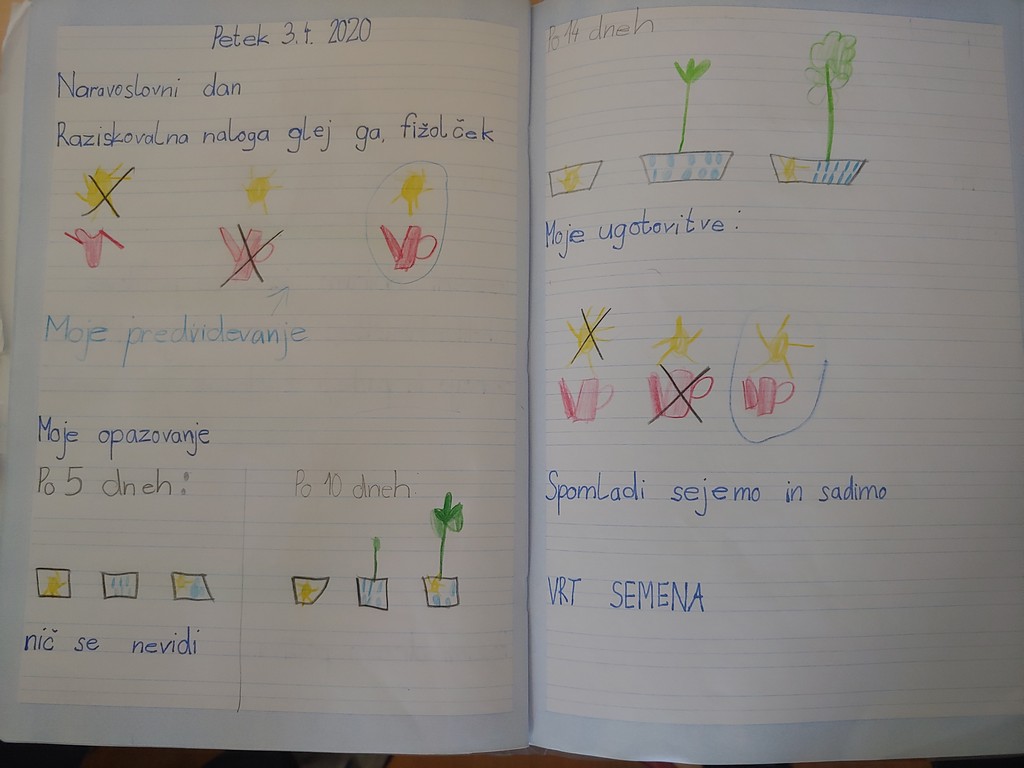 Petek 3.4. 2020
Naravoslovni dan
Raziskovalna naloga glej ga, fižolček
Moje predvidevanje
Moje opazovanje
Po 5 dneh:
Po 10 dneh:
nič se nevidi
Po 14 dneh
Moje ugotovitve:
Spomladi sejemo in sadimo
VRT SEMENA